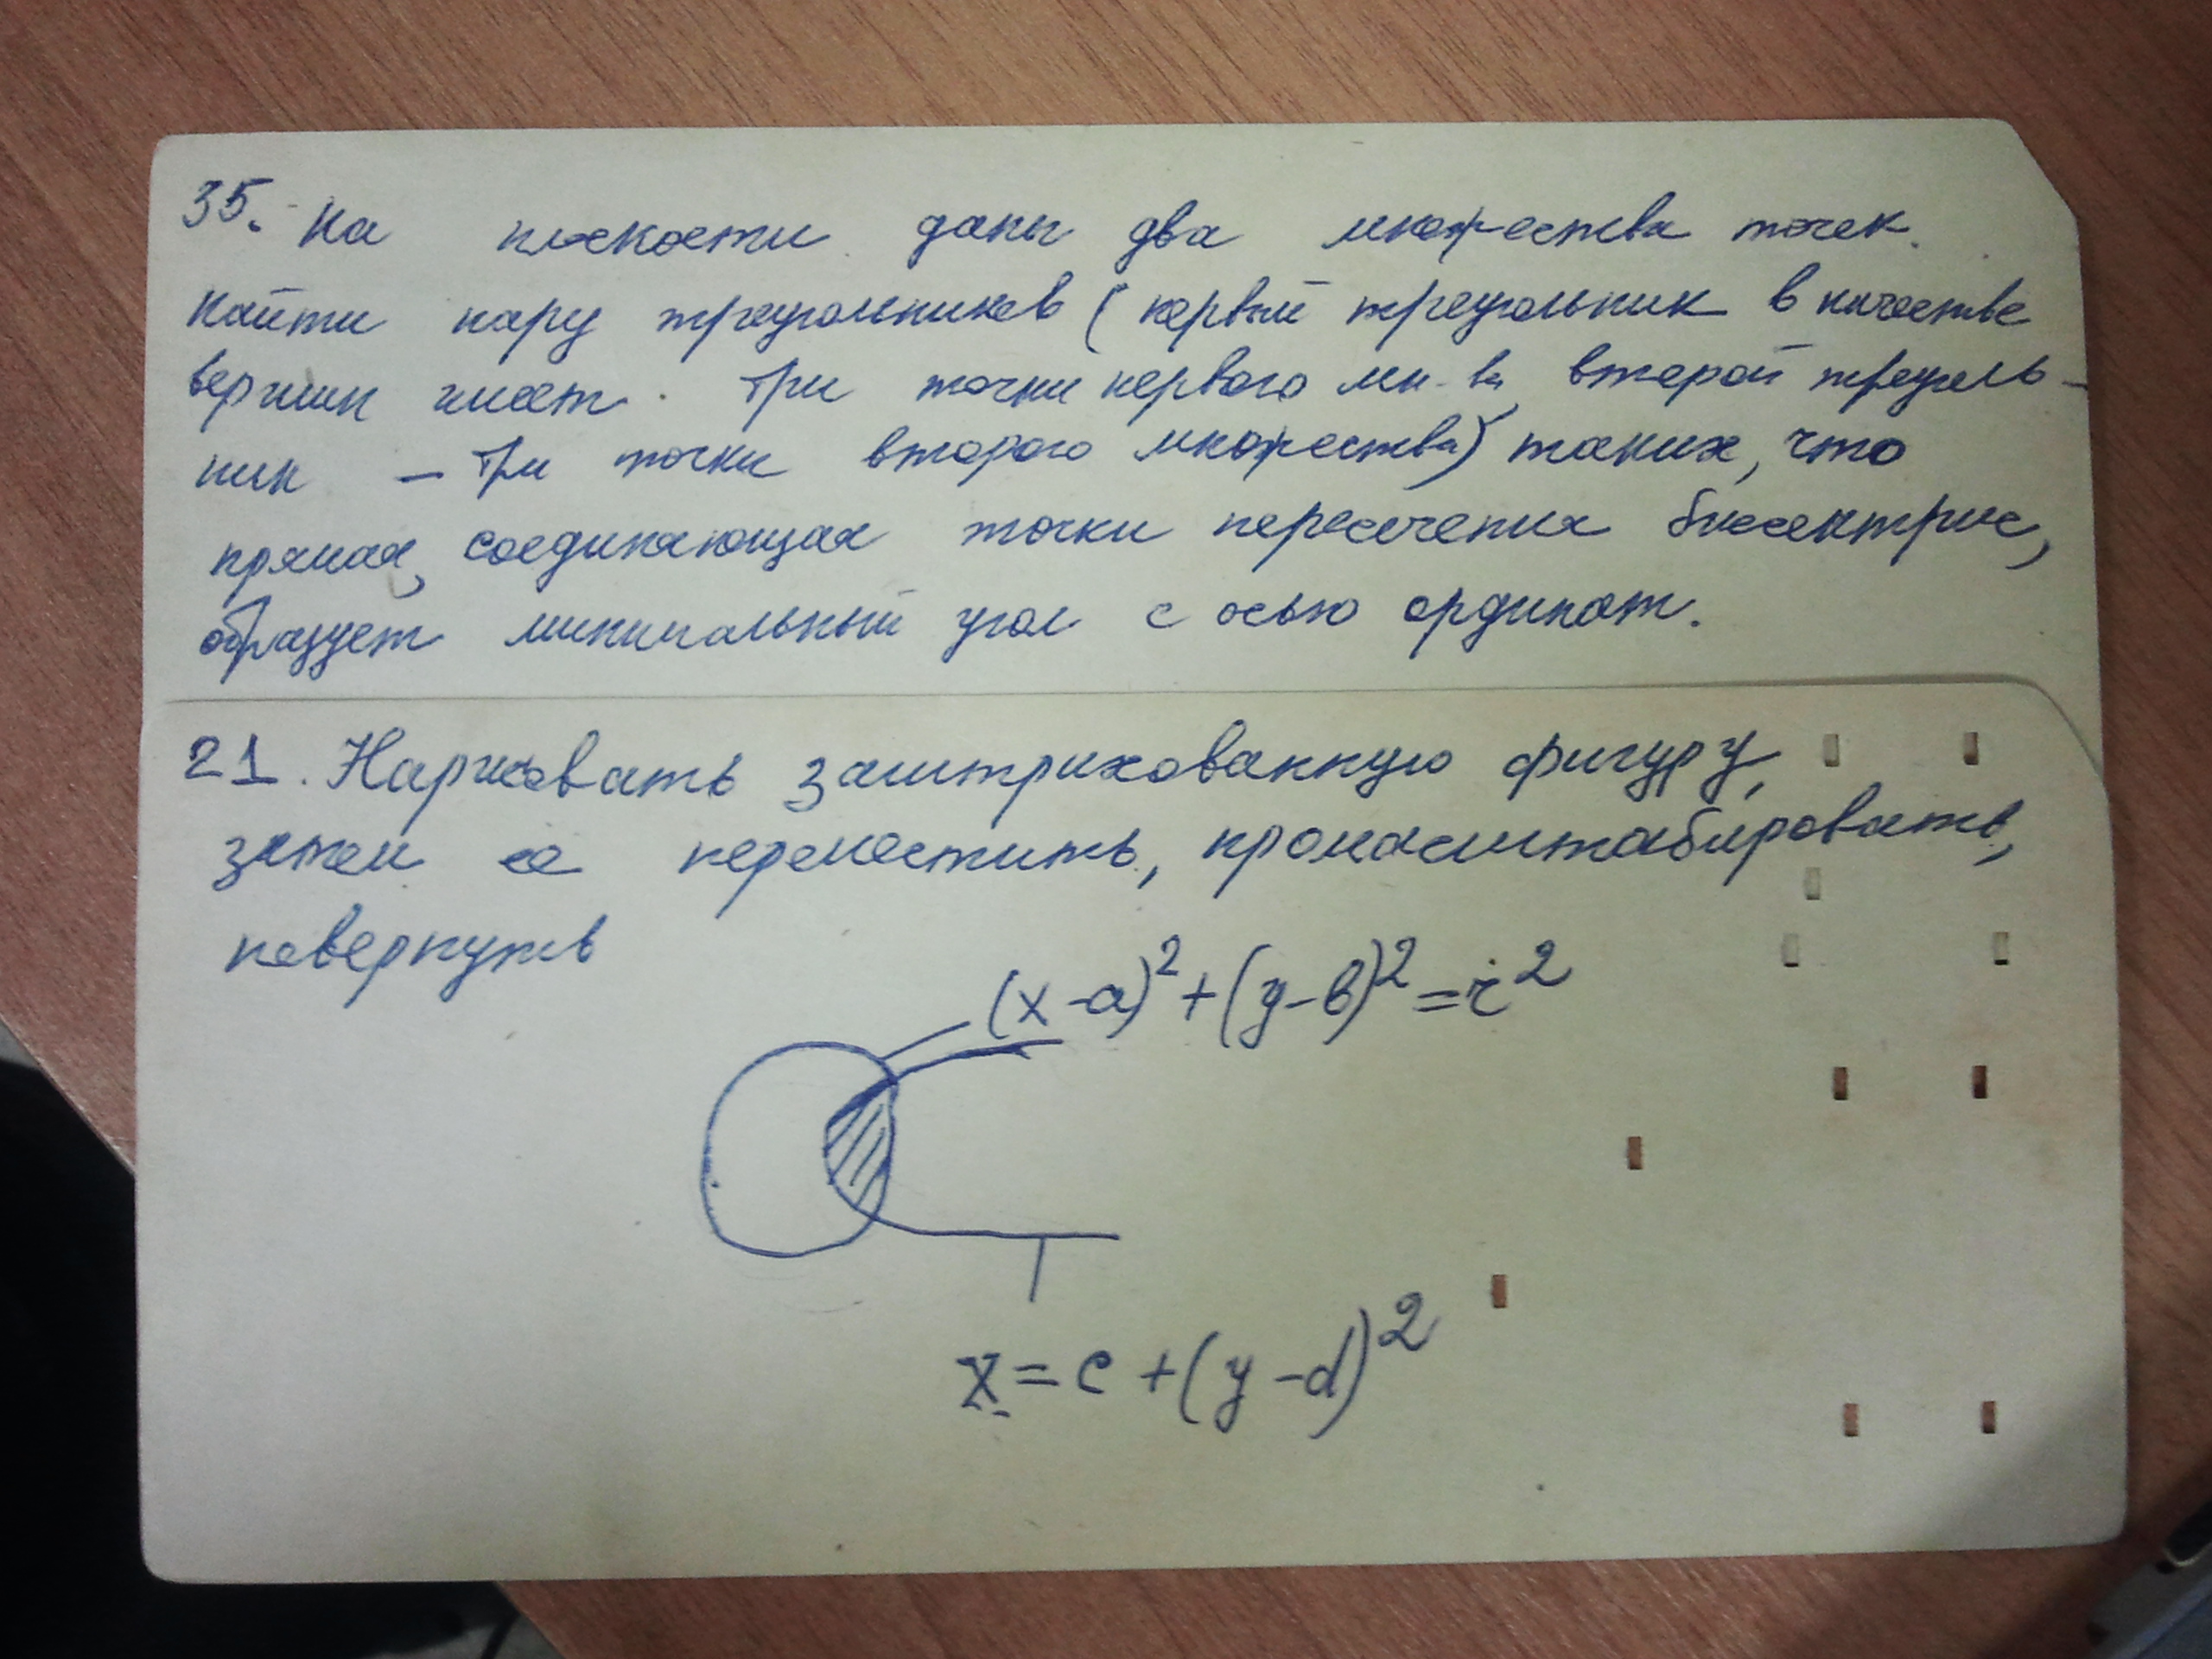 35. На плоскости даны два множества точек.
Найти пару треугольников (первый треугольник в качестве
вершин имеет три точки первого мн-ва, второй треуголь-
ник — три точки второго множества) таких, что
прямая, соединяющая точки пересечения биссектрис,
образует минимальный угол с осью ординат.
21. Нарисовать заштрихованную фигуру,
затем ее переместить, промасштабировать,
повернуть
(x-a)²+(y-b)²=r²
x=c+(y-d)²